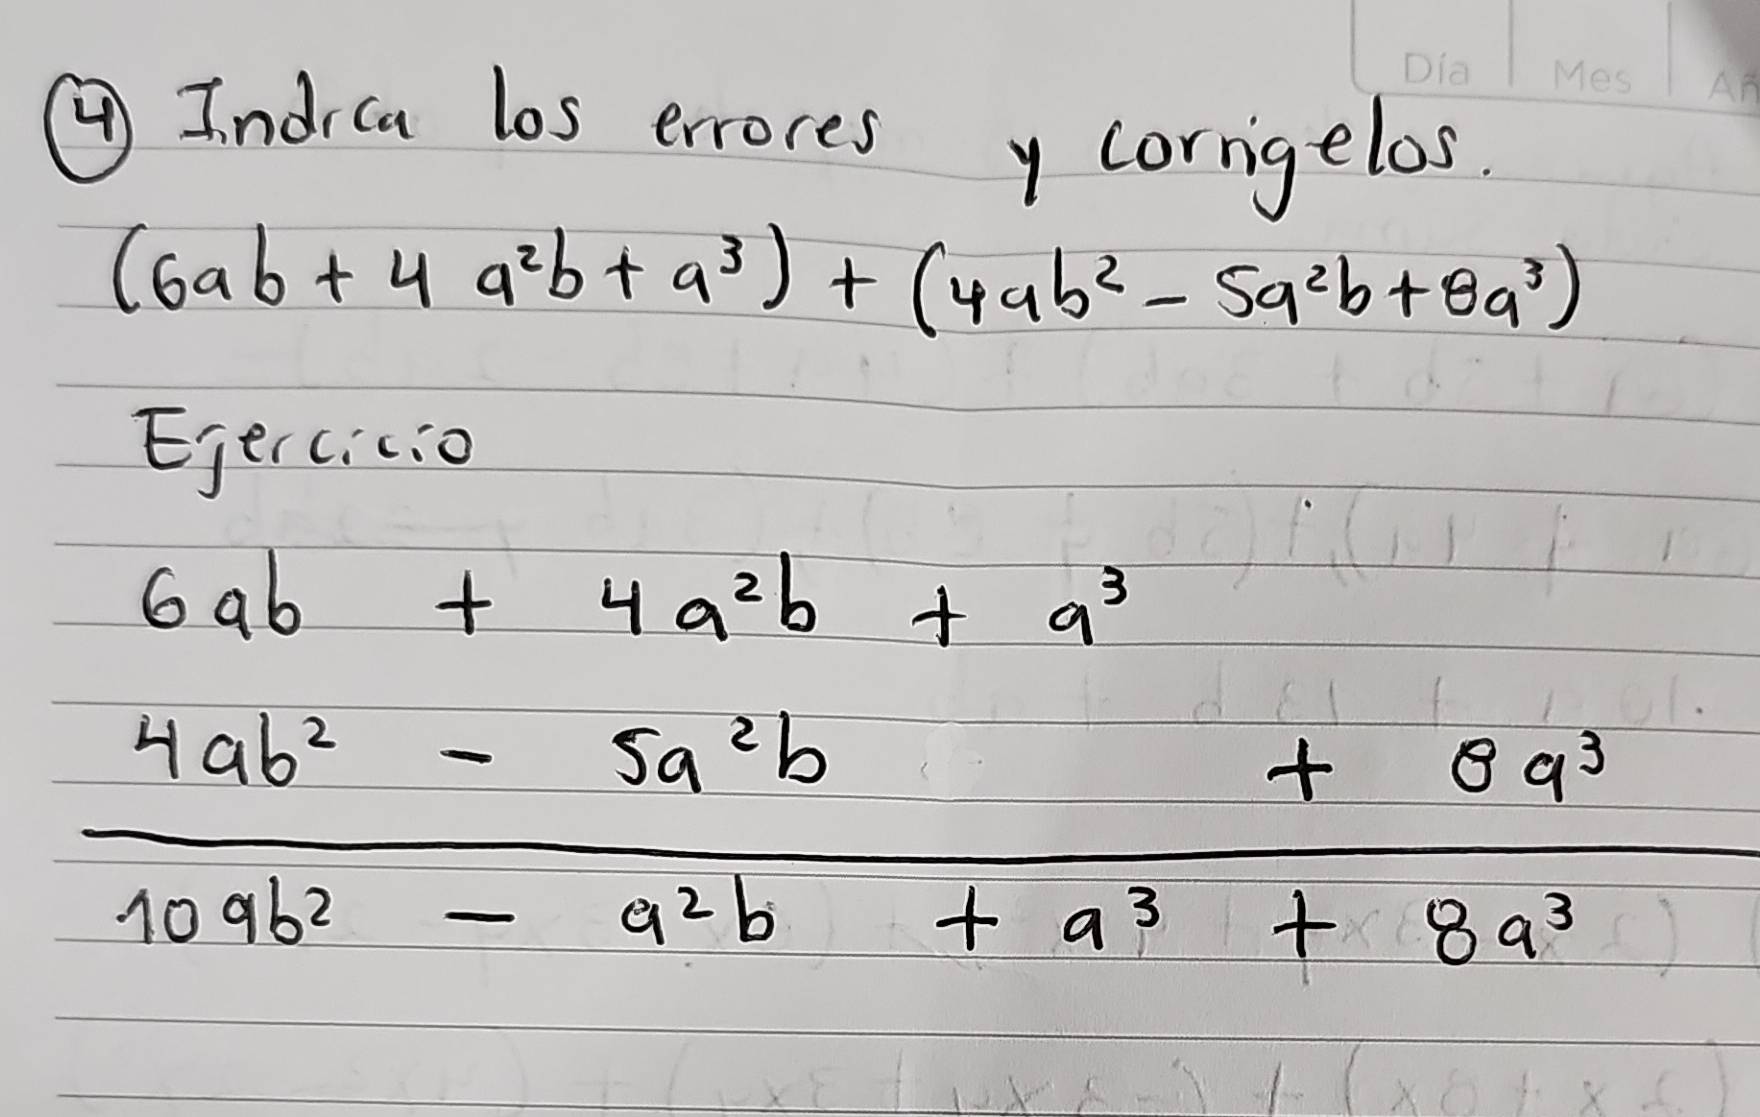 Día Mes
④ Indica los errores y corrigelos.
(6ab + 4 a²b + a³) + (4ab² - 5a²b + 8a³)
Ejercicio
6ab + 4a²b + a³
4ab² - 5a²b + 8a³
10ab² - a²b + a³ + 8a³